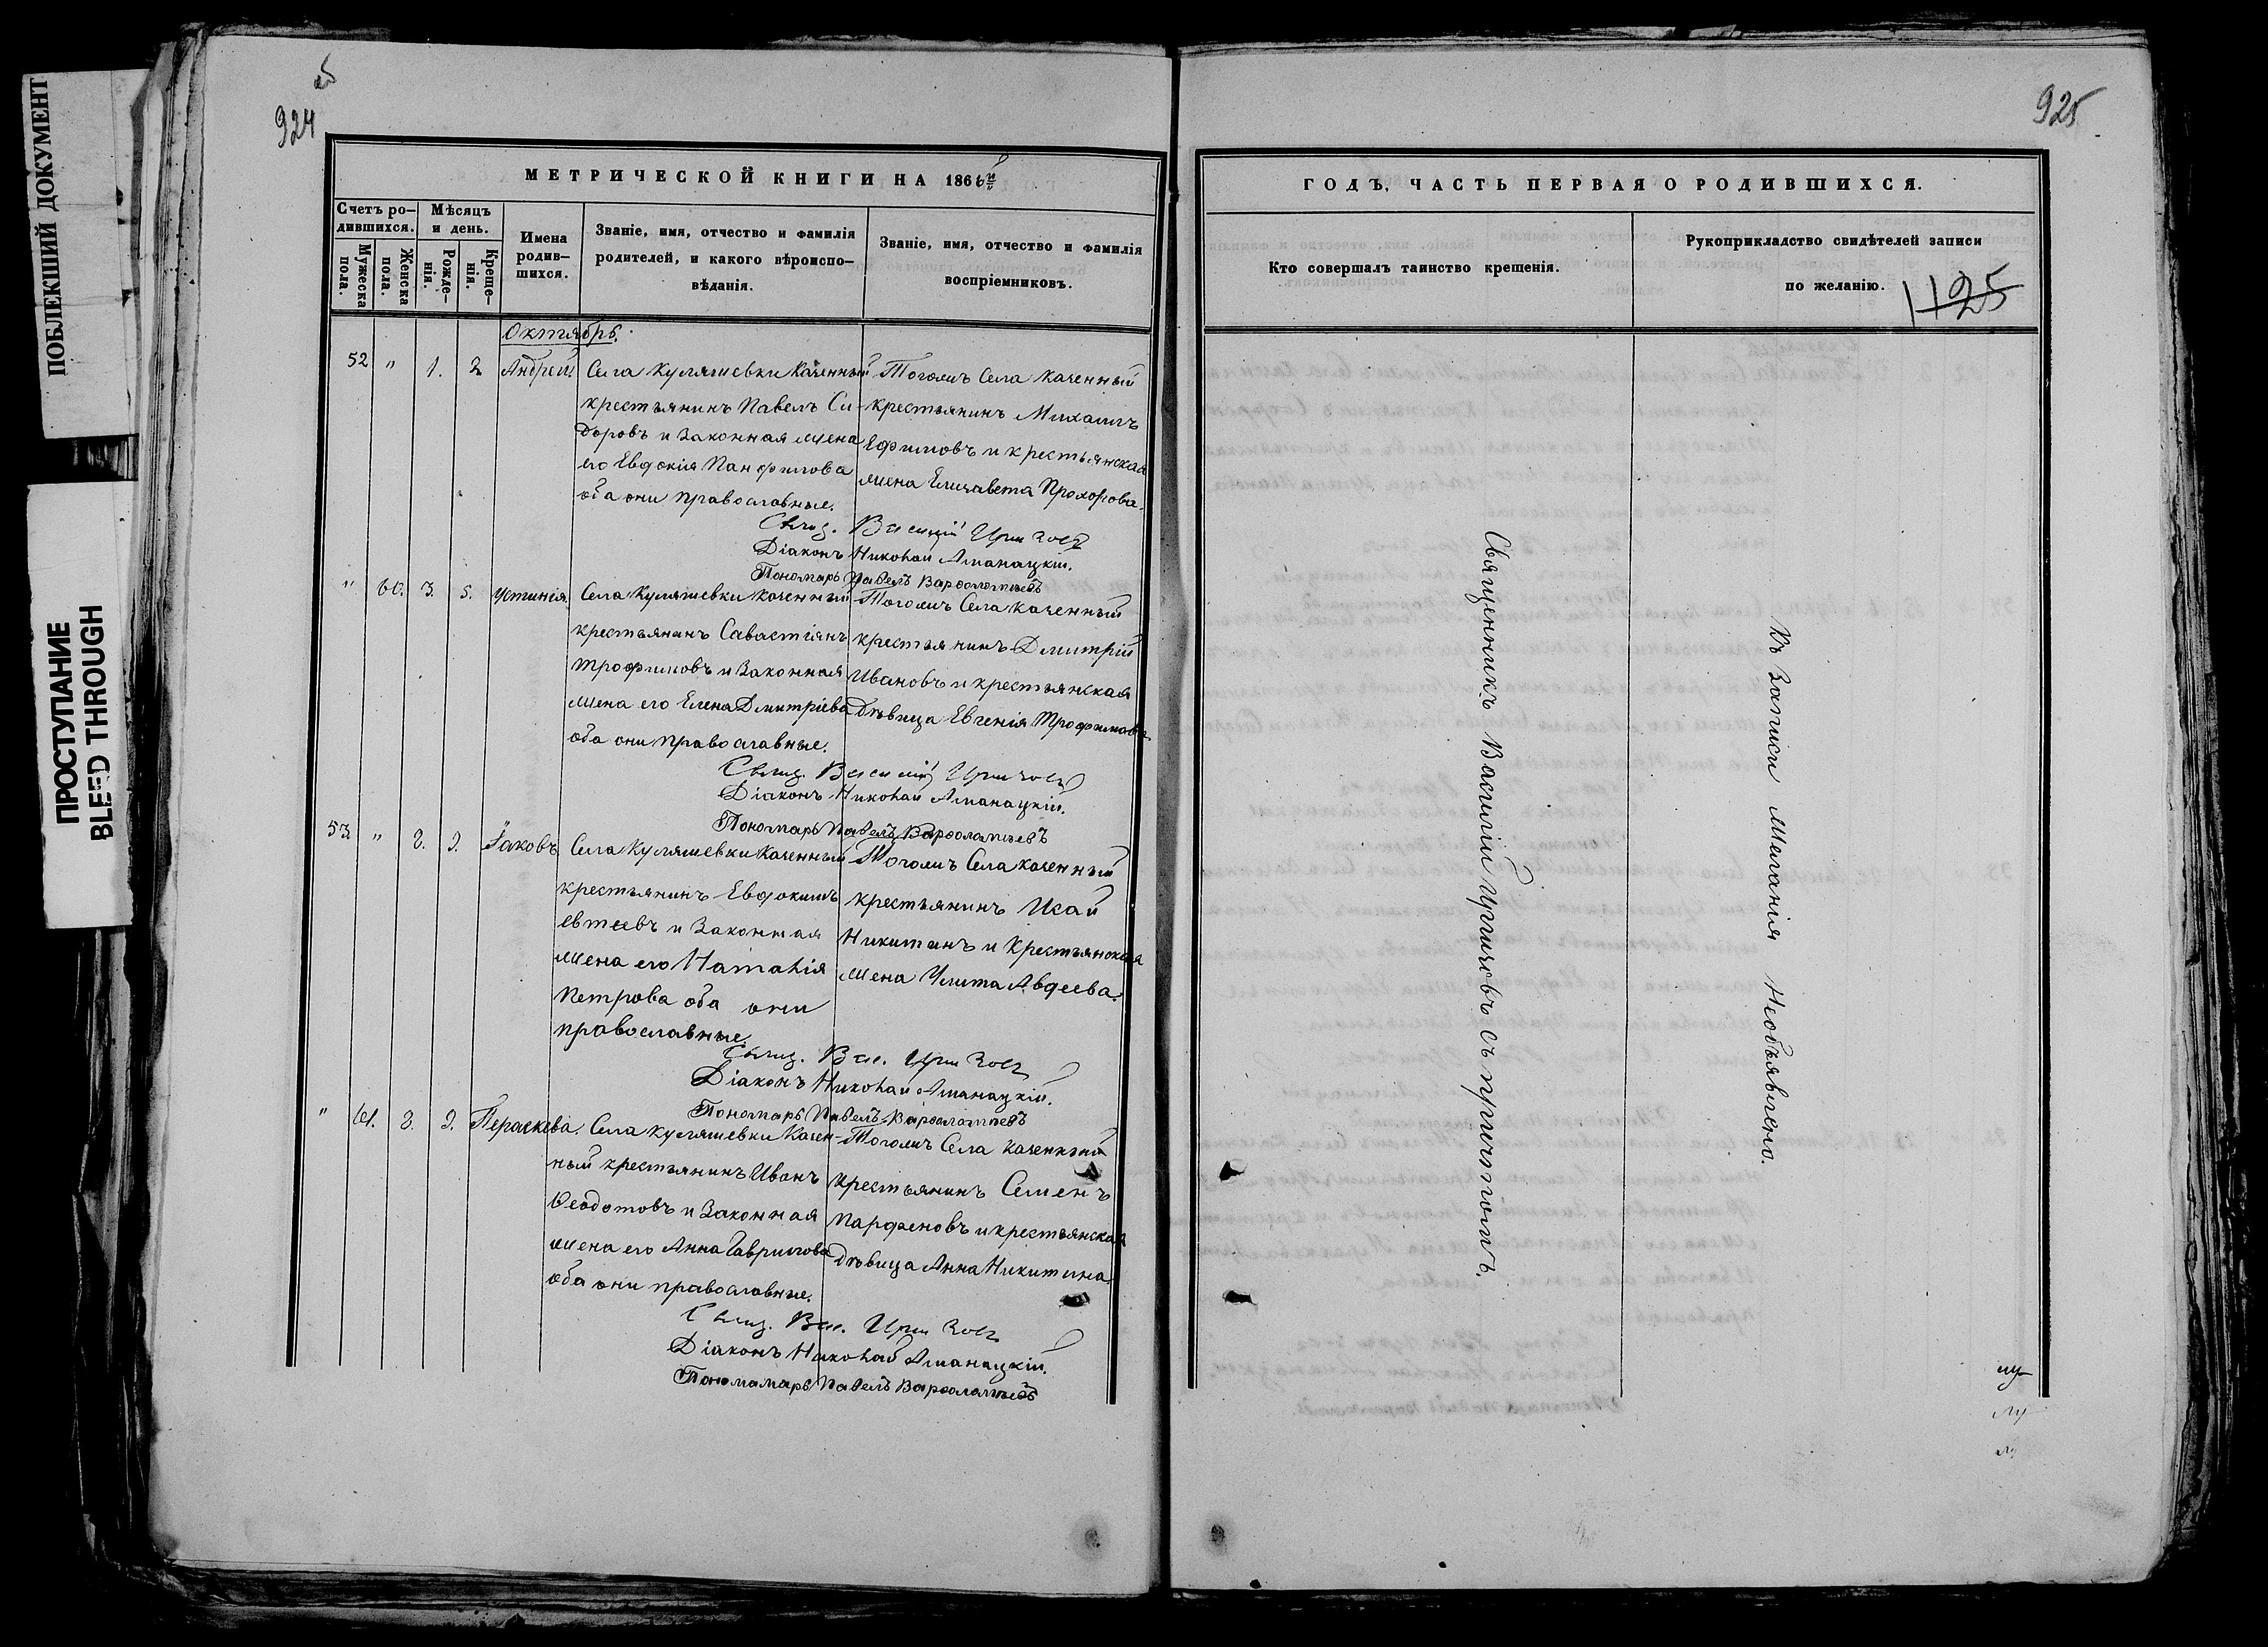 ПОБЛЕКШИЙ ДОКУМЕНТ
ПРОСТУПАНИЕ
BLEED THROUGH
924
МЕТРИЧЕСКОЙ КНИГИ НА 1866й
Счетъ ро-
дившихся.
Мужеска
пола.
Женска
пола.
Мѣсяцъ
и день.
Рожде-
нія.
Креще-
нія.
Имена
родив-
шихся.
Званіе, имя, отчество и фамилія
родителей, и какого вѣроиспо-
вѣданія.
Званіе, имя, отчество и фамилія
воспріемниковъ.
Октябрь.
52 " 1. 2 Андрей.
Села Куляшевки Казенный
крестьянинъ Павелъ Си-
доровъ и Законная жена
его Евдокія Панфилова
оба они православные.
Тогожъ Села казенный
крестьянинъ Михаилъ
Ефимовъ и крестьянская
жена Елизавета Прохорова.
Свящ. Василій
Діаконъ Николай Аманацкій.
Пономарь Павелъ Варѳоломѣевъ
" 60. 3. 5. Устинія.
Села Куляшевки казенный
крестьянинъ Савастіянъ
Трофимовъ и Законная
жена его Елена Дмитріева
оба они православные.
Тогожъ Села казенный
крестьянинъ Дмитрій
Ивановъ и крестьянская
Дѣвица Евгенія Трофимова
Свящ. Василій
Діаконъ Николай Аманацкій.
Пономарь Павелъ Варѳоломѣевъ
53. " 8. 9. Іаковъ
Села Куляшевки Казенный
крестьянинъ Евдокимъ
Евтеевъ и Законная
жена его Наталія
Петрова оба они
православные.
Тогожъ Села казенный
крестьянинъ Исай
Никитинъ и Крестьянская
жена Улита Авдеева.
Свящ. Вас.
Діаконъ Николай Аманацкій.
Пономарь Павелъ Варѳоломѣевъ
" 61. 8. 9. Параскева.
Села Куляшевки Казен-
ный крестьянинъ Иванъ
Ѳеодотовъ и Законная
жена его Анна Гаврилова
оба они православные.
Тогожъ Села казенный
крестьянинъ Семенъ
Парфеновъ и крестьянская
Дѣвица Анна Никитина.
Свящ. Вас.
Діаконъ Николай Аманацкій.
Пономарь Павелъ Варѳоломѣевъ
925
ГОДЪ, ЧАСТЬ ПЕРВАЯ О РОДИВШИХСЯ.
Кто совершалъ таинство крещенія.
Рукоприкладство свидѣтелей записи
по желанію.
1125
Священникъ Василій Цригловъ съ причтомъ.
Къ Записи Желанія Необъявлено.